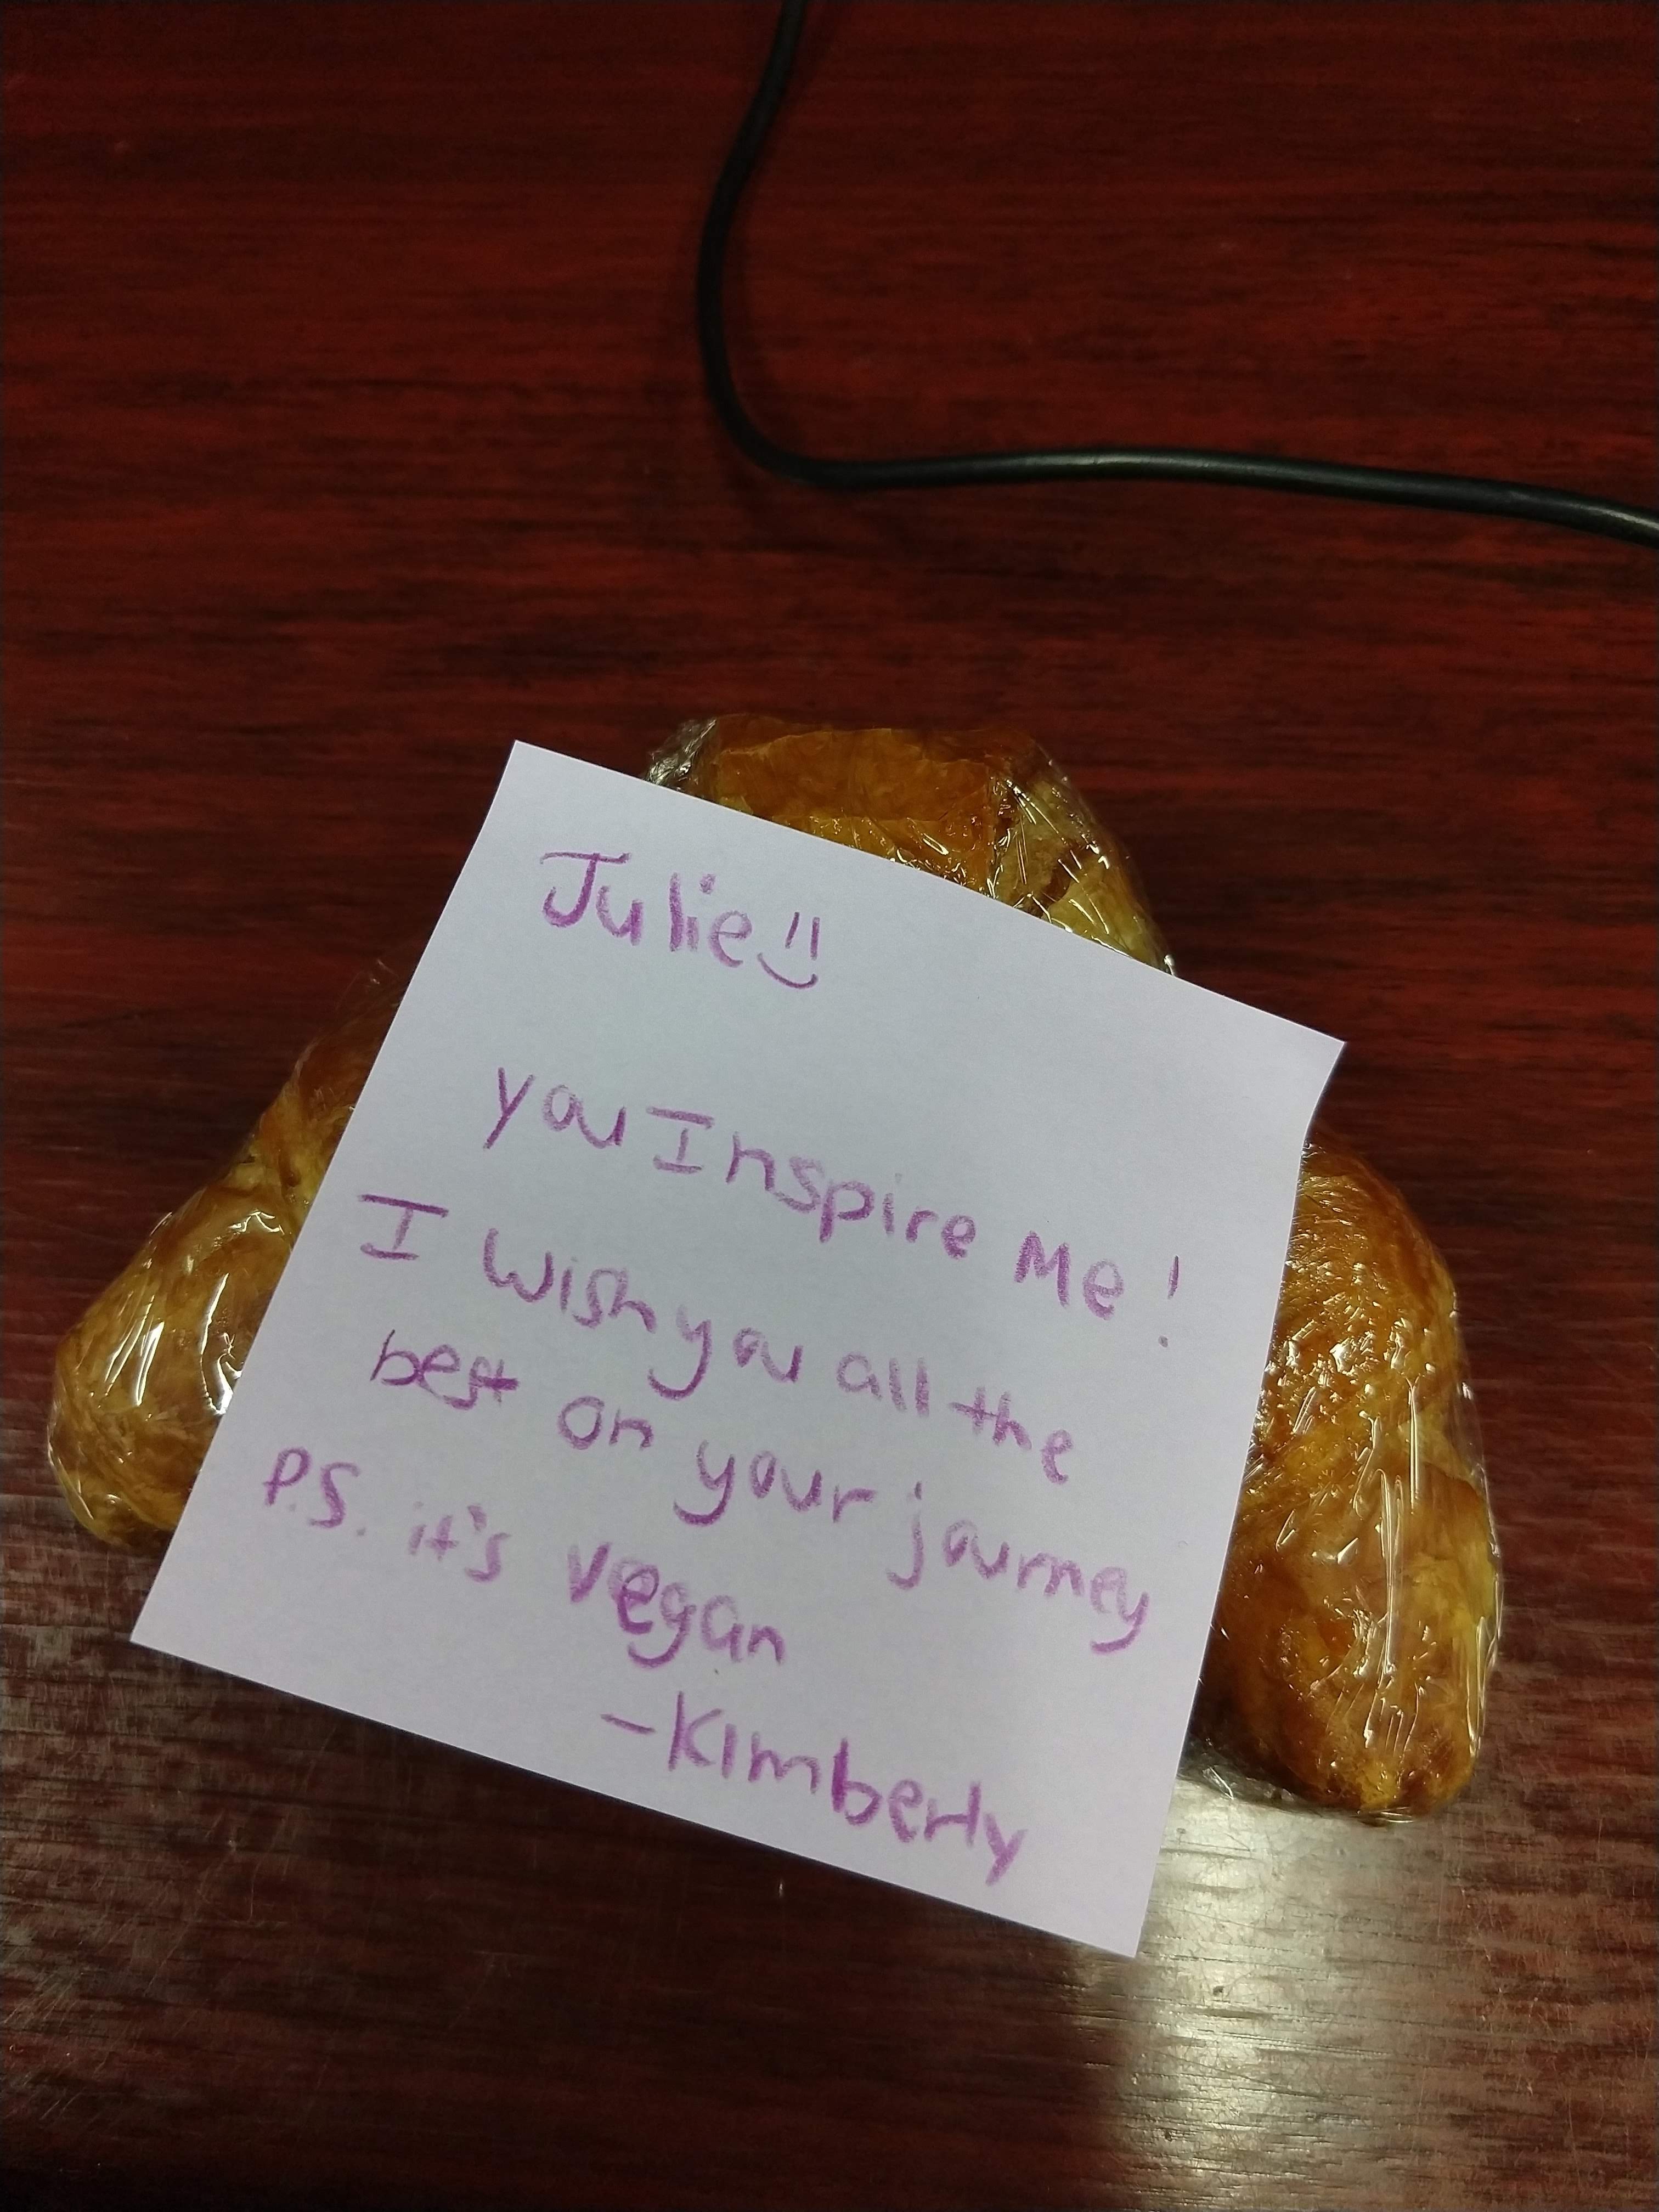 Julie
you Inspire Me!
I Wish you all the
best on your journey
P.S. it's vegan
-Kimberly